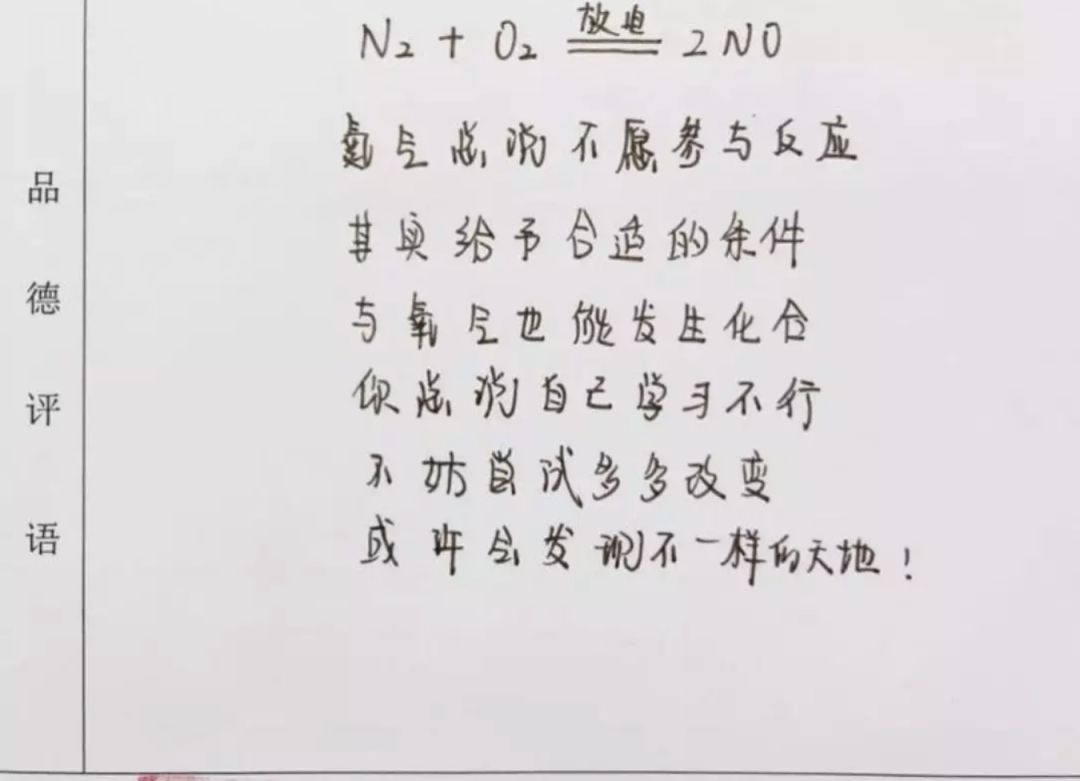 品德评语
N₂ + O₂ 放电 2NO
氮气总说不愿参与反应
其实给予合适的条件
与氧气也能发生化合
你总说自己学习不行
不妨尝试多多改变
或许会发现不一样的天地！